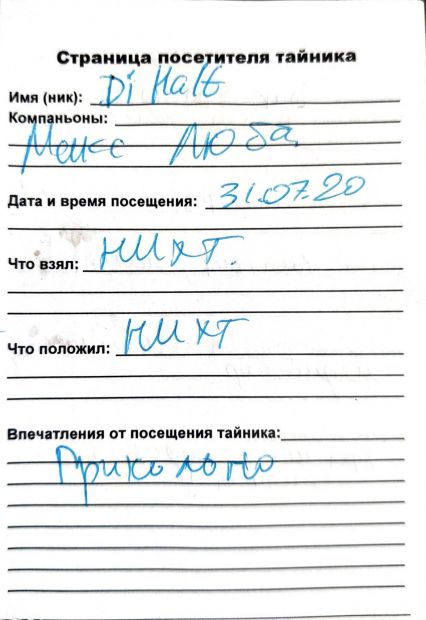 Страница посетителя тайника
Имя (ник): Di Halt
Компаньоны:
Макс Люба
Дата и время посещения: 31.07.20
Что взял: НИХТ.
Что положил: НИХТ
Впечатления от посещения тайника:
Прикольно